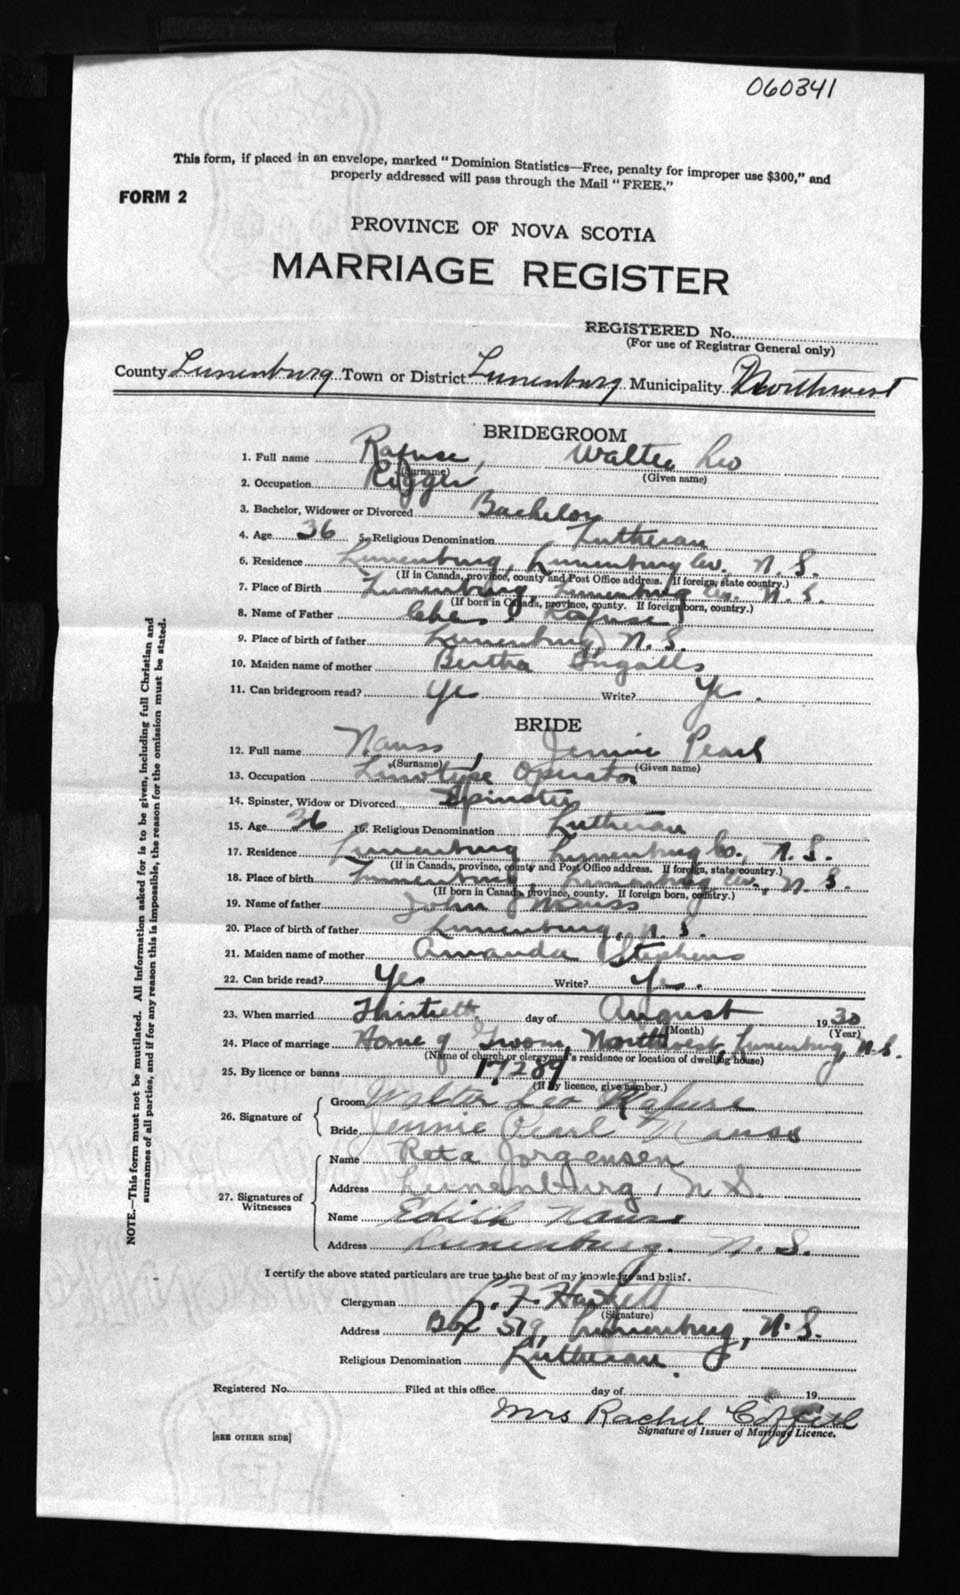 060341
This form, if placed in an envelope, marked "Dominion Statistics—Free, penalty for improper use $300," and
properly addressed will pass through the Mail "FREE."
FORM 2
PROVINCE OF NOVA SCOTIA
MARRIAGE REGISTER
REGISTERED No.
(For use of Registrar General only)
County Lunenburg Town or District Lunenburg Municipality Northwest
BRIDEGROOM
1. Full name Rafuse, Walter Leo
(Surname) (Given name)
2. Occupation Rigger
3. Bachelor, Widower or Divorced Bachelor
4. Age 36 5. Religious Denomination Lutheran
6. Residence Lunenburg, Lunenburg Co., N. S.
(If in Canada, province, county and Post Office address. If foreign, state country.)
7. Place of Birth Lunenburg, Lunenburg Co. N. S.
(If born in Canada, province, county. If foreign born, country.)
8. Name of Father Chas Rafuse
9. Place of birth of father Lunenburg, N. S.
10. Maiden name of mother Bertha Ingalls
11. Can bridegroom read? Yes Write? Yes.
BRIDE
12. Full name Nauss, Jennie Pearl
(Surname) (Given name)
13. Occupation Linotype Operator
14. Spinster, Widow or Divorced Spinster
15. Age 36 16. Religious Denomination Lutheran
17. Residence Lunenburg Lunenburg Co., N. S.
(If in Canada, province, county and Post Office address. If foreign, state country.)
18. Place of birth Lunenburg, Lunenburg Co., N. S.
(If born in Canada, province, county. If foreign born, country.)
19. Name of father John Nauss
20. Place of birth of father Lunenburg, N. S.
21. Maiden name of mother Amanda Stephens
22. Can bride read? Yes Write? Yes.
23. When married Thirtieth day of August 1930
(Month) (Year)
24. Place of marriage Home of Groom, Northwest, Lunenburg, N. S.
(Name of church or clergyman's residence or location of dwelling house)
25. By licence or banns 17289
(If by licence, give number.)
26. Signature of
Groom Walter Leo Rafuse
Bride Jennie Pearl Nauss
27. Signatures of Witnesses
Name Reta Jorgensen
Address Lunenburg, N S.
Name Edith Nauss
Address Lunenburg. N. S.
I certify the above stated particulars are true to the best of my knowledge and belief.
Clergyman F.
(Signature)
Address Box 519, Lunenburg, N. S.
Religious Denomination Lutheran.
Registered No. Filed at this office day of 19
Mrs Rachel
Signature of Issuer of Marriage Licence.
[SEE OTHER SIDE]
NOTE.—This form must not be mutilated. All information asked for is to be given, including full Christian and
surnames of all parties, and if for any reason this is impossible, the reason for the omission must be stated.